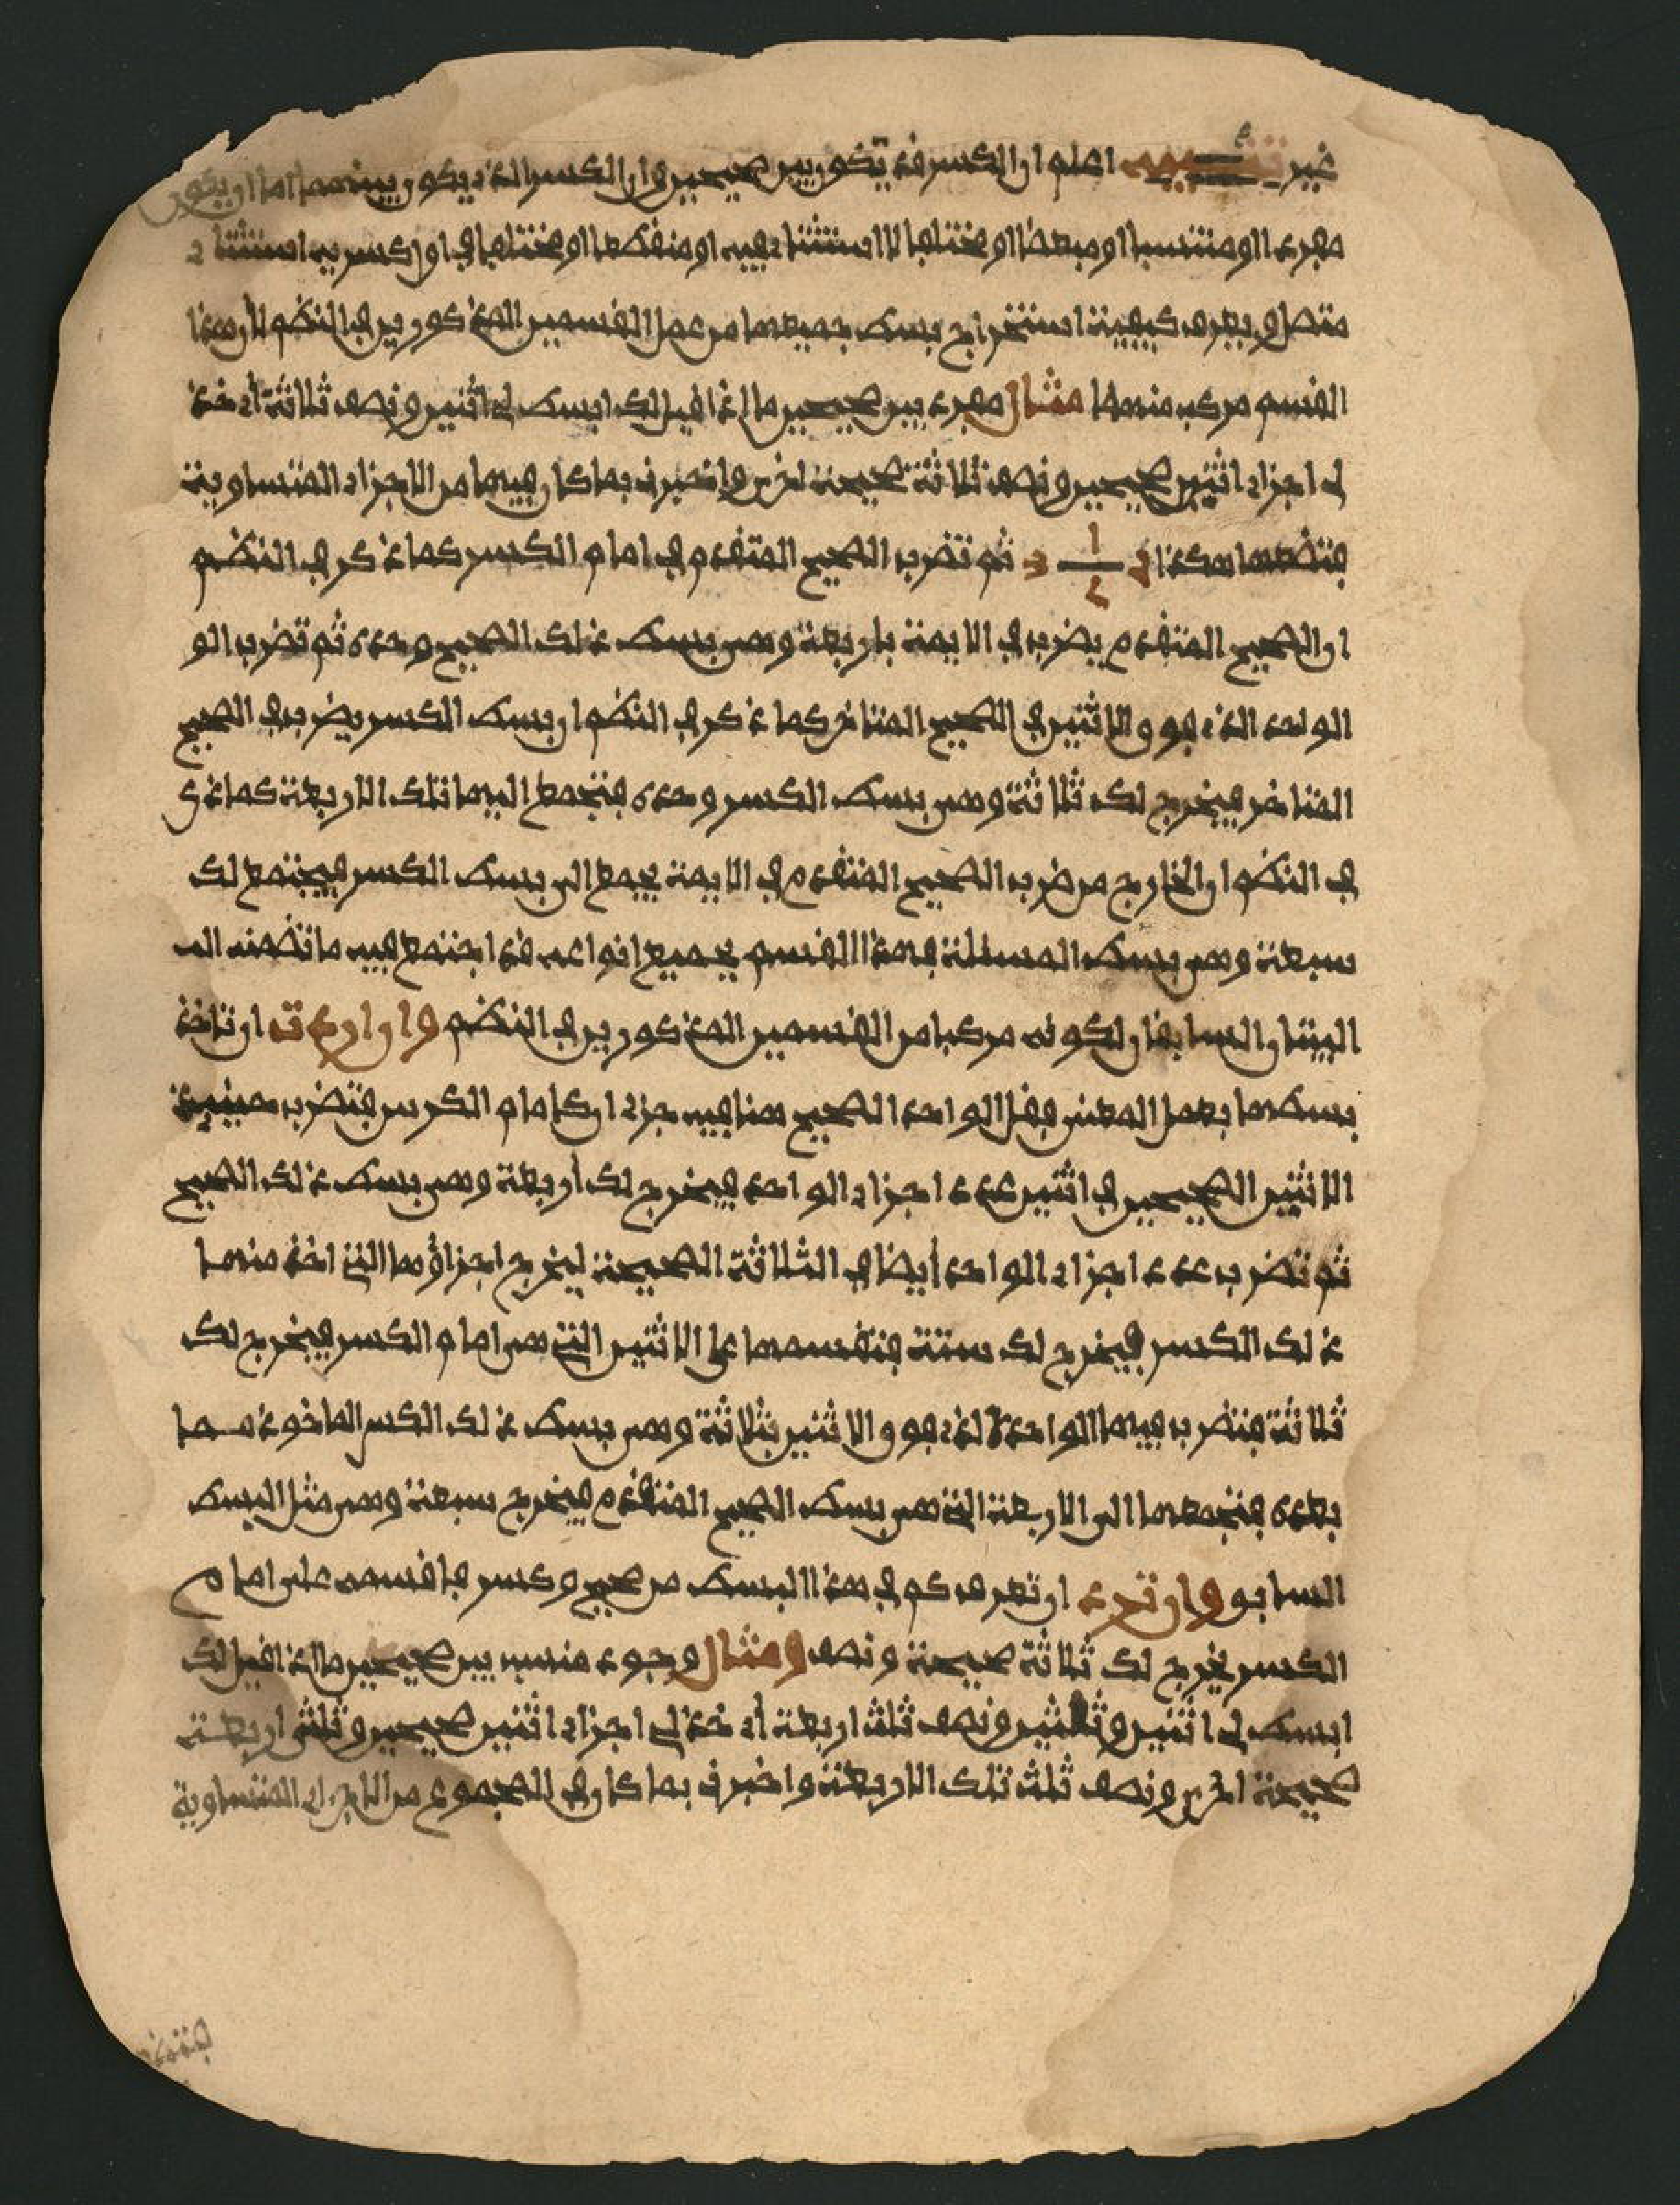 غير تنبيه اعلم ان الكسر قد يكون بين صحيحين وان الكسر الذي يكون بينهما اما ان يكون
مفردا او منتسبا او مبعضا او مختلفا لا استثناء فيه او منقطعا او مختلفا في اول كسر به استثناء
متصل ويعرف كيفية استخراج بسط جميعها من عمل القسمين المذكورين في النظم لان هذا
القسم مركب منهما مثال مفرد بين صحيحين ما اذا قيل لك ابسط لي اثنين ونصف ثلاثة أي خذ
لي اجزاء اثنين صحيحين ونصف ثلاثة صحيحة اخرى واخبرني بما كان فيهما من الاجزاء المتساوية
فتضعها هكذا 2 1/2 3 ثم تضرب الصحيح المتقدم في امام الكسر كما ذكر في النظم
ان الصحيح المتقدم يضرب في الايمة باربعة وهي بسط ذلك الصحيح وحده ثم تضرب الو
الواحد الذي فوق الاثنين في الصحيح المتاخر كما ذكر في النظم ان بسط الكسر يضرب في الصحيح
المتاخر فيخرج لك ثلاثة وهي بسط الكسر وحده فتجمع اليها تلك الاربعة كما ذكر
في النظم ان الخارج من ضرب الصحيح المتقدم في الايمة يجمع الى بسط الكسر فيجتمع لك
سبعة وهي بسط المسئلة فهذا القسم بجميع انواعه قد اجتمع فيه ما تضمنه الب
البيتان السابقان لكونه مركبا من القسمين المذكورين في النظم وان اردت ان تاخذ
بسطها بعمل المعنى فقل الواحد الصحيح هنا فيه جزءان كامام الكسر فتضرب حينيذ
الاثنين الصحيحين في اثنين عدد اجزاء الواحد فيخرج لك أربعة وهي بسط ذلك الصحيح
ثم تضرب عدد اجزاء الواحد أيضا في الثلاثة الصحيحة ليخرج اجزاؤها التي اخذ منها
ذلك الكسر فيخرج لك ستة فتقسمها على الاثنين التي هي امام الكسر فيخرج لك
ثلاثة فتضرب فيها الواحد الذي فوق الاثنين بثلاثة وهي بسط ذلك الكسر الماخوذ مما
بعده فتجمعها الى الاربعة التي هي بسط الصحيح المتقدم فيخرج سبعة وهي مثل البسط
السابق وان ترد ان تعرف كم في هذا البسط من صحيح وكسر فاقسمه على امام
الكسر يخرج لك ثلاثة صحيحة ونصف ومثال وجود منتسب بين صحيحين ما اذا قيل لك
ابسط لي اثنين وثلثين ونصف ثلث اربعة أي خذ لي اجزاء اثنين صحيحين وثلثي اربعة
صحيحة اخرى ونصف ثلث تلك الاربعة واخبرني بما كان في المجموع من الاجزاء المتساوية